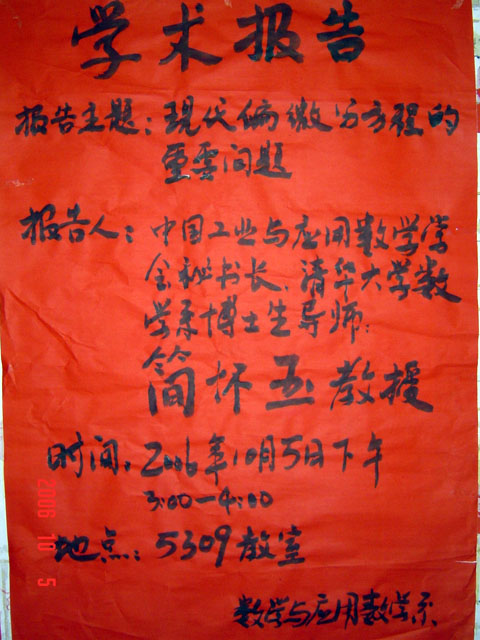 学术报告
报告主题：现代偏微分方程的
重要问题
报告人：中国工业与应用数学学
会秘书长、清华大学数
学系博士生导师：
简怀玉教授
时间：2006年10月5日下午
3:00—4:00
地点：5309教室
数学与应用数学系
2006 10 5